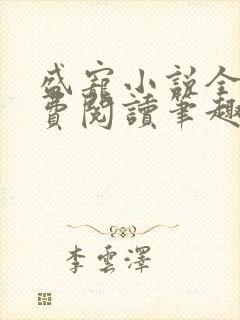 盛寵小說全
費閱讀筆趣
李雲澤